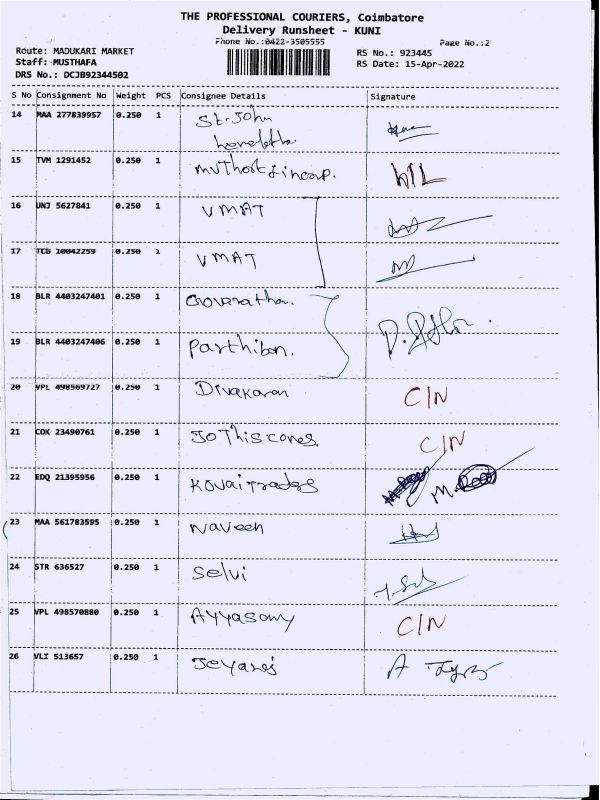 THE PROFESSIONAL COURIERS, Coimbatore
Delivery Runsheet - KUNI
Phone No.:0422-3505555 Page No.:2
Route: MADUKARI MARKET
Staff: MUSTHAFA
DRS No.: DCJB92344502
RS No.: 923445
RS Date: 15-Apr-2022
S No Consignment No Weight PCS Consignee Details Signature
14 MAA 277839957 0.250 1 St. John
15 TVM 1291452 0.250 1 Muthoot fincop.
16 UNJ 5627841 0.250 1 VMAT
17 TCG 10042259 0.250 1 VMAT
18 BLR 4403247401 0.250 1
19 BLR 4403247406 0.250 1 Parthiban.
20 VPL 498569727 0.250 1 Divakaran C/N
21 COK 23490761 0.250 1 C/N
22 EDQ 21395956 0.250 1 Kovai Trades
23 MAA 561783595 0.250 1 Naveen
24 STR 636527 0.250 1 Selvi
25 VPL 498570880 0.250 1 Ayyasamy C/N
26 VLI 513657 0.250 1 Jeyaraj